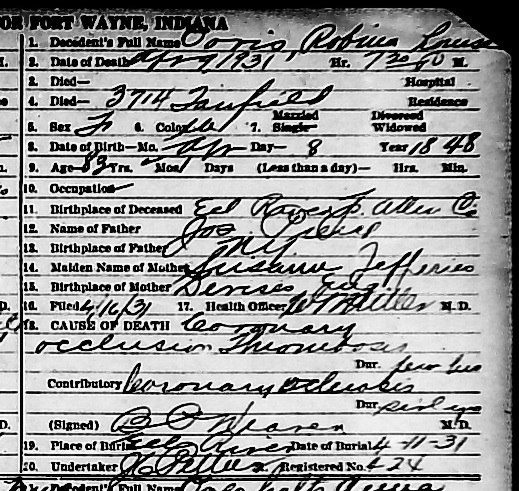 OR FORT WAYNE, INDIANA
1. Decedent's Full Name Orris, Robina Louise
2. Date of Death Apr 9 1931 Hr. 730 P M.
3. Died— Hospital
4. Died— 3714 Fairfield Residence
Married Divorced
5. Sex F 6. Color W 7. Single Widowed
8. Date of Birth—Mo. Apr Day— 8 Year 1848
9. Age 83 Yrs. Mos. Days (Less than a day)— Hrs. Min.
10. Occupation
11. Birthplace of Deceased Eel River Allen Co
12. Name of Father Jos
13. Birthplace of Father N Y
14. Maiden Name of Mother Susanna Jefferies
15. Birthplace of Mother Eng
16. Filed 4/16/31 17. Health Officer M. D.
18. CAUSE OF DEATH Coronary
occlusion Thrombosis
Dur. few hrs
Contributory Coronary sclerosis
Dur. yrs
(Signed) M. D.
19. Place of Burial Eel River Date of Burial 4-11-31
20. Undertaker Registered No. 424
Decedent's Full Name